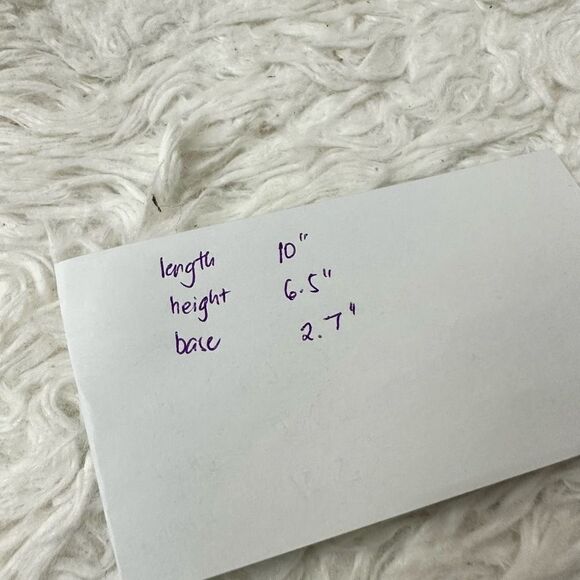 length 10"
height 6.5"
base 2.7"